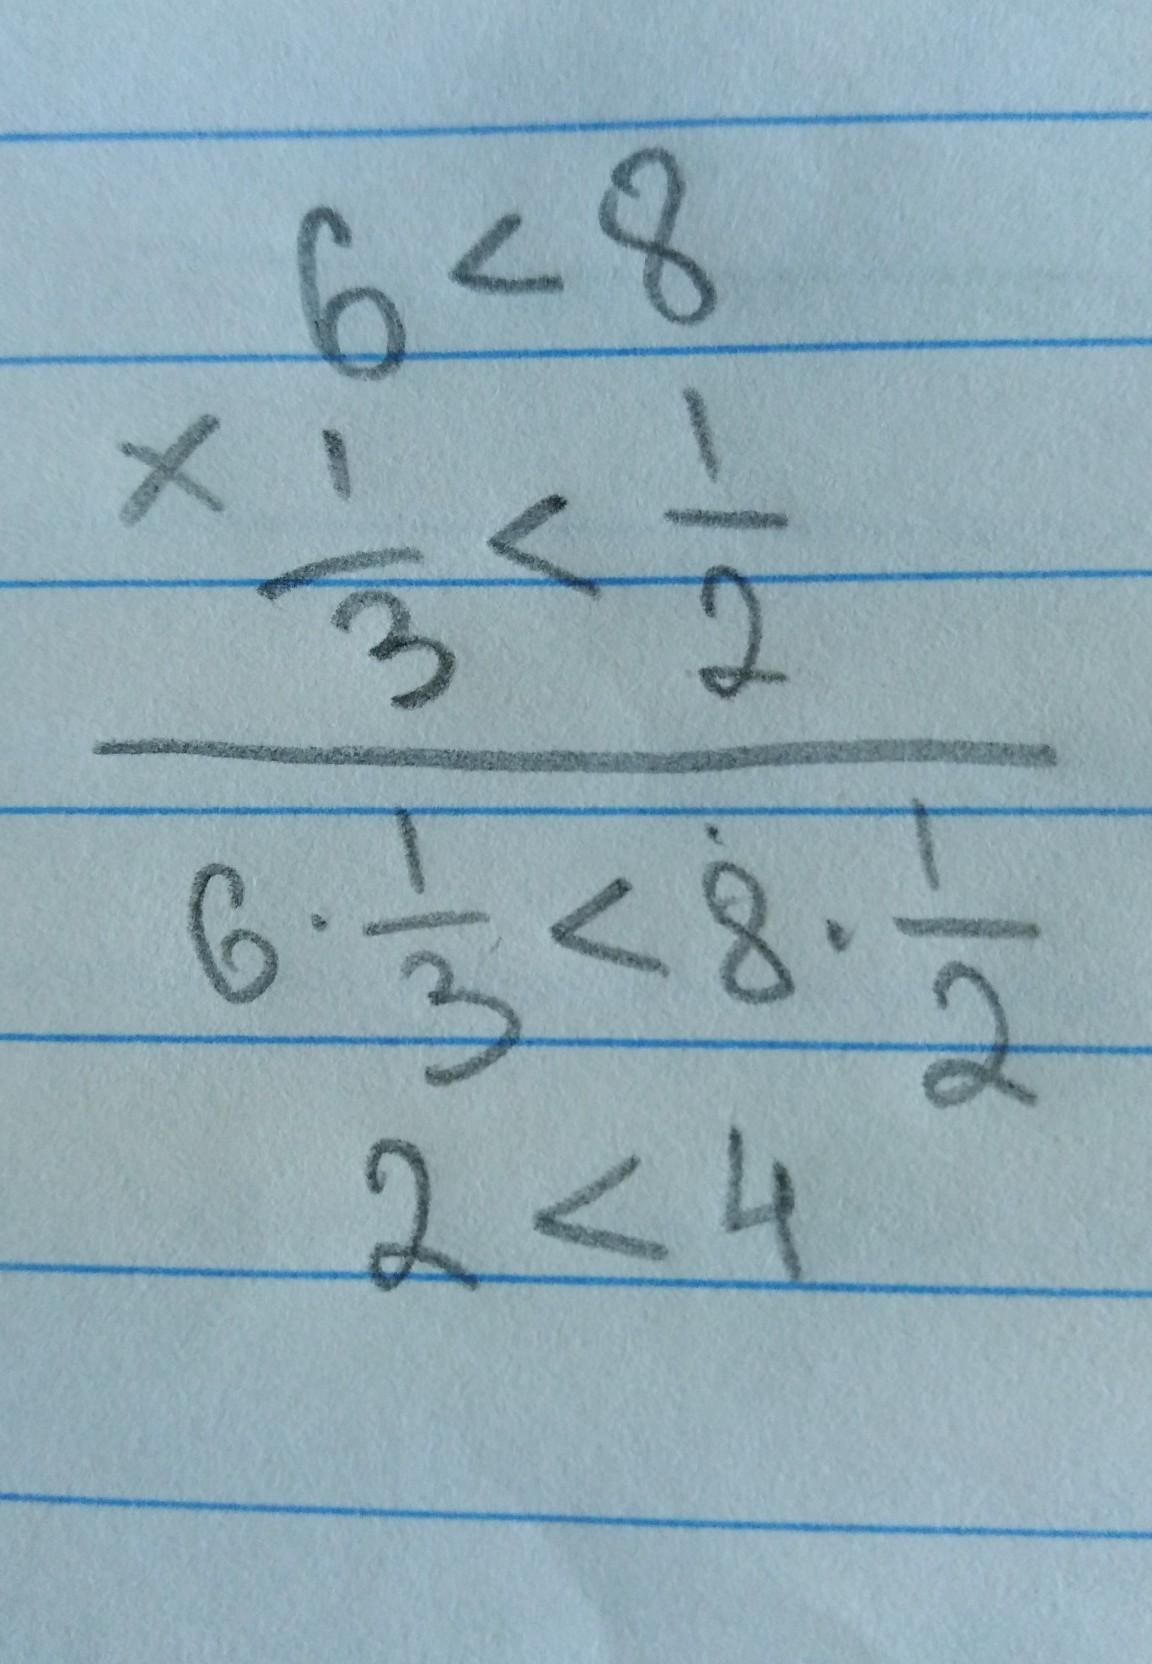 6 < 8
× 1/3 < 1/2
6 · 1/3 < 8 · 1/2
2 < 4